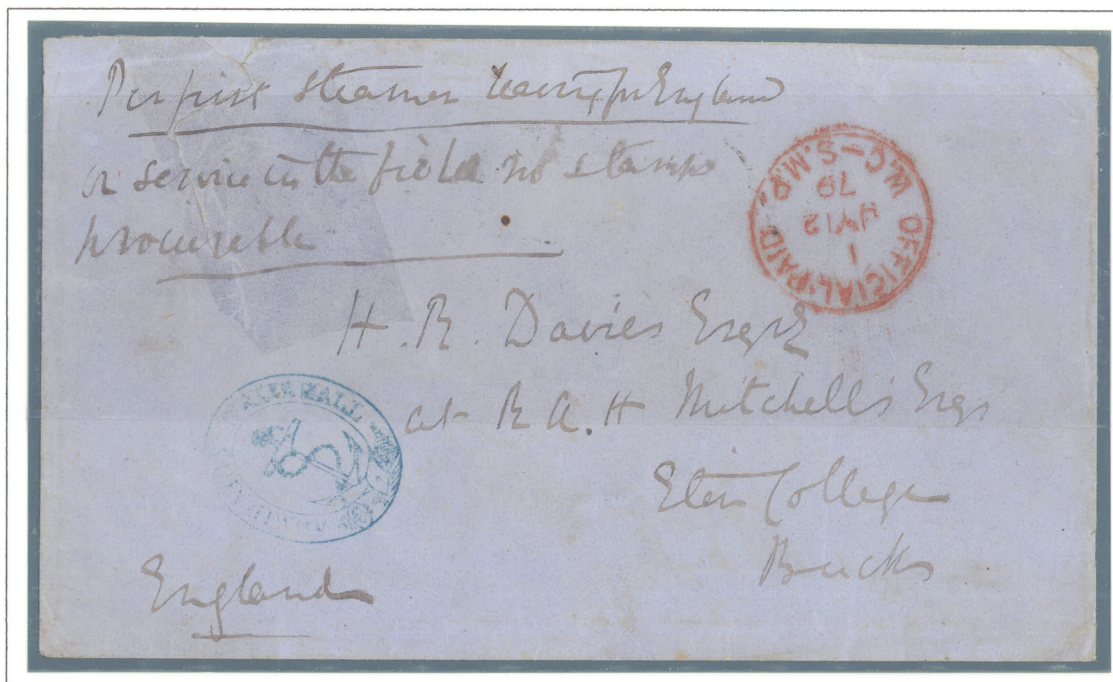 Per first steamer leaving for England
or service in the field no stamps
procurable
OFFICIAL·PAID
W.C–S.M.P.
1
JY 12
79
H. R. Davies Esqre
at R A. H Mitchell's Esqs
Eton College
Bucks
England